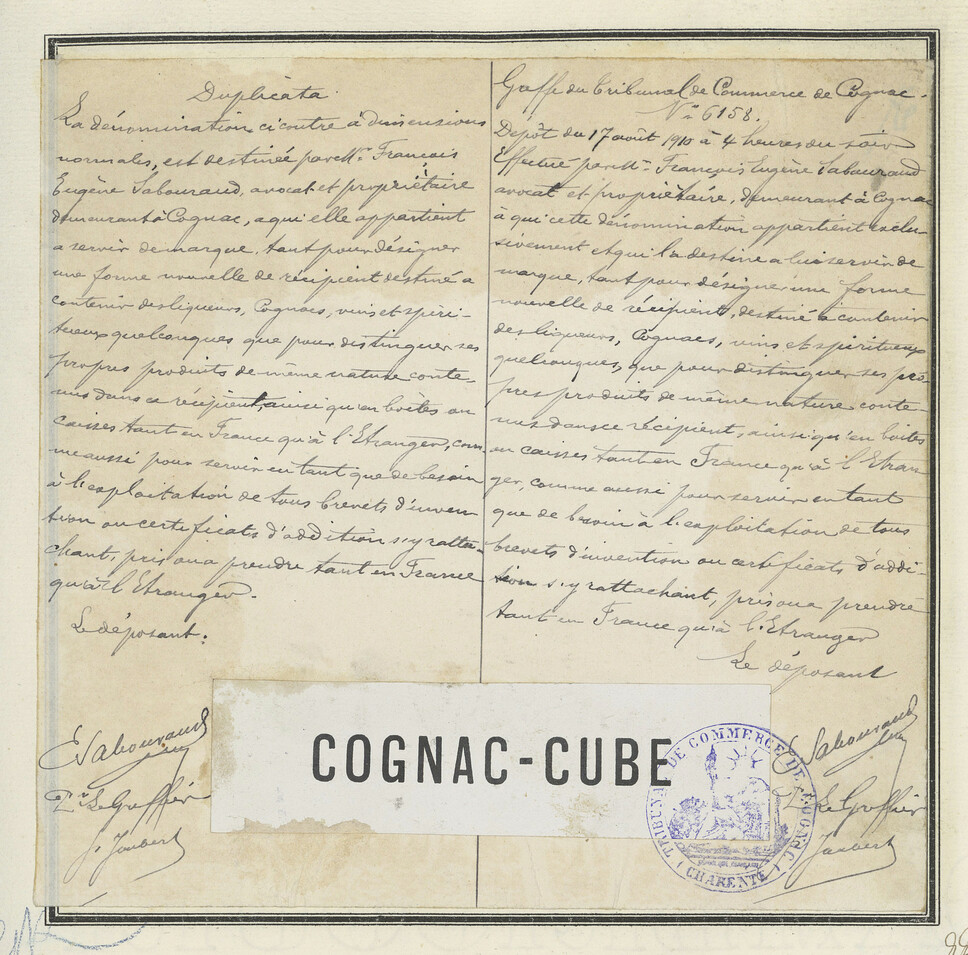 Duplicata
La dénomination ci contre à dimensions
normales, est destinée par Mr. François
Eugène Sabouraud, avocat et propriétaire
demeurant à Cognac, a qui elle appartient
a servir de marque, tant pour désigner
une forme nouvelle de récipient destiné a
contenir des liqueurs, Cognacs, vins et spiri-
tueux quelconques que pour distinguer ses
propres produits de même nature conte-
nus dans ce récipient, ainsi qu'en boîtes ou
caisses tant en France qu'à l'Etranger, com-
me aussi pour servir en tant que de besoin
à l'exploitation de tous brevets d'inven-
tion ou certificats d'addition s'y ratta-
chant, pris ou a prendre tant en France
qu'à l'Etranger.
Le déposant:
E Sabouraud
Le Greffier
J. Joubert
Greffe du Tribunal de Commerce de Cognac.
No 6158.
Dépôt du 17 août 1910 à 4 heures du soir
Effectué par Mr. François Eugène Sabouraud
avocat et propriétaire, demeurant à Cognac
à qui cette dénomination appartient exclu-
sivement et qui la destine a lui servir de
marque, tant pour désigner une forme
nouvelle de récipient, destiné à contenir
des liqueurs, Cognacs, vins et spiritueux
quelconques, que pour distinguer ses pro-
pres produits de même nature conte-
nus dans ce récipient, ainsi qu'en boîtes
ou caisses tant en France qu'à l'Etran-
ger, comme aussi pour servir en tant
que de besoin à l'exploitation de tous
brevets d'invention ou certificats d'addi-
tion s'y rattachant, pris ou a prendre
tant en France qu'à l'Etranger
Le déposant
E Sabouraud
Le Greffier
Joubert
COGNAC-CUBE
TRIBUNAL DE COMMERCE DE COGNAC
(CHARENTE)